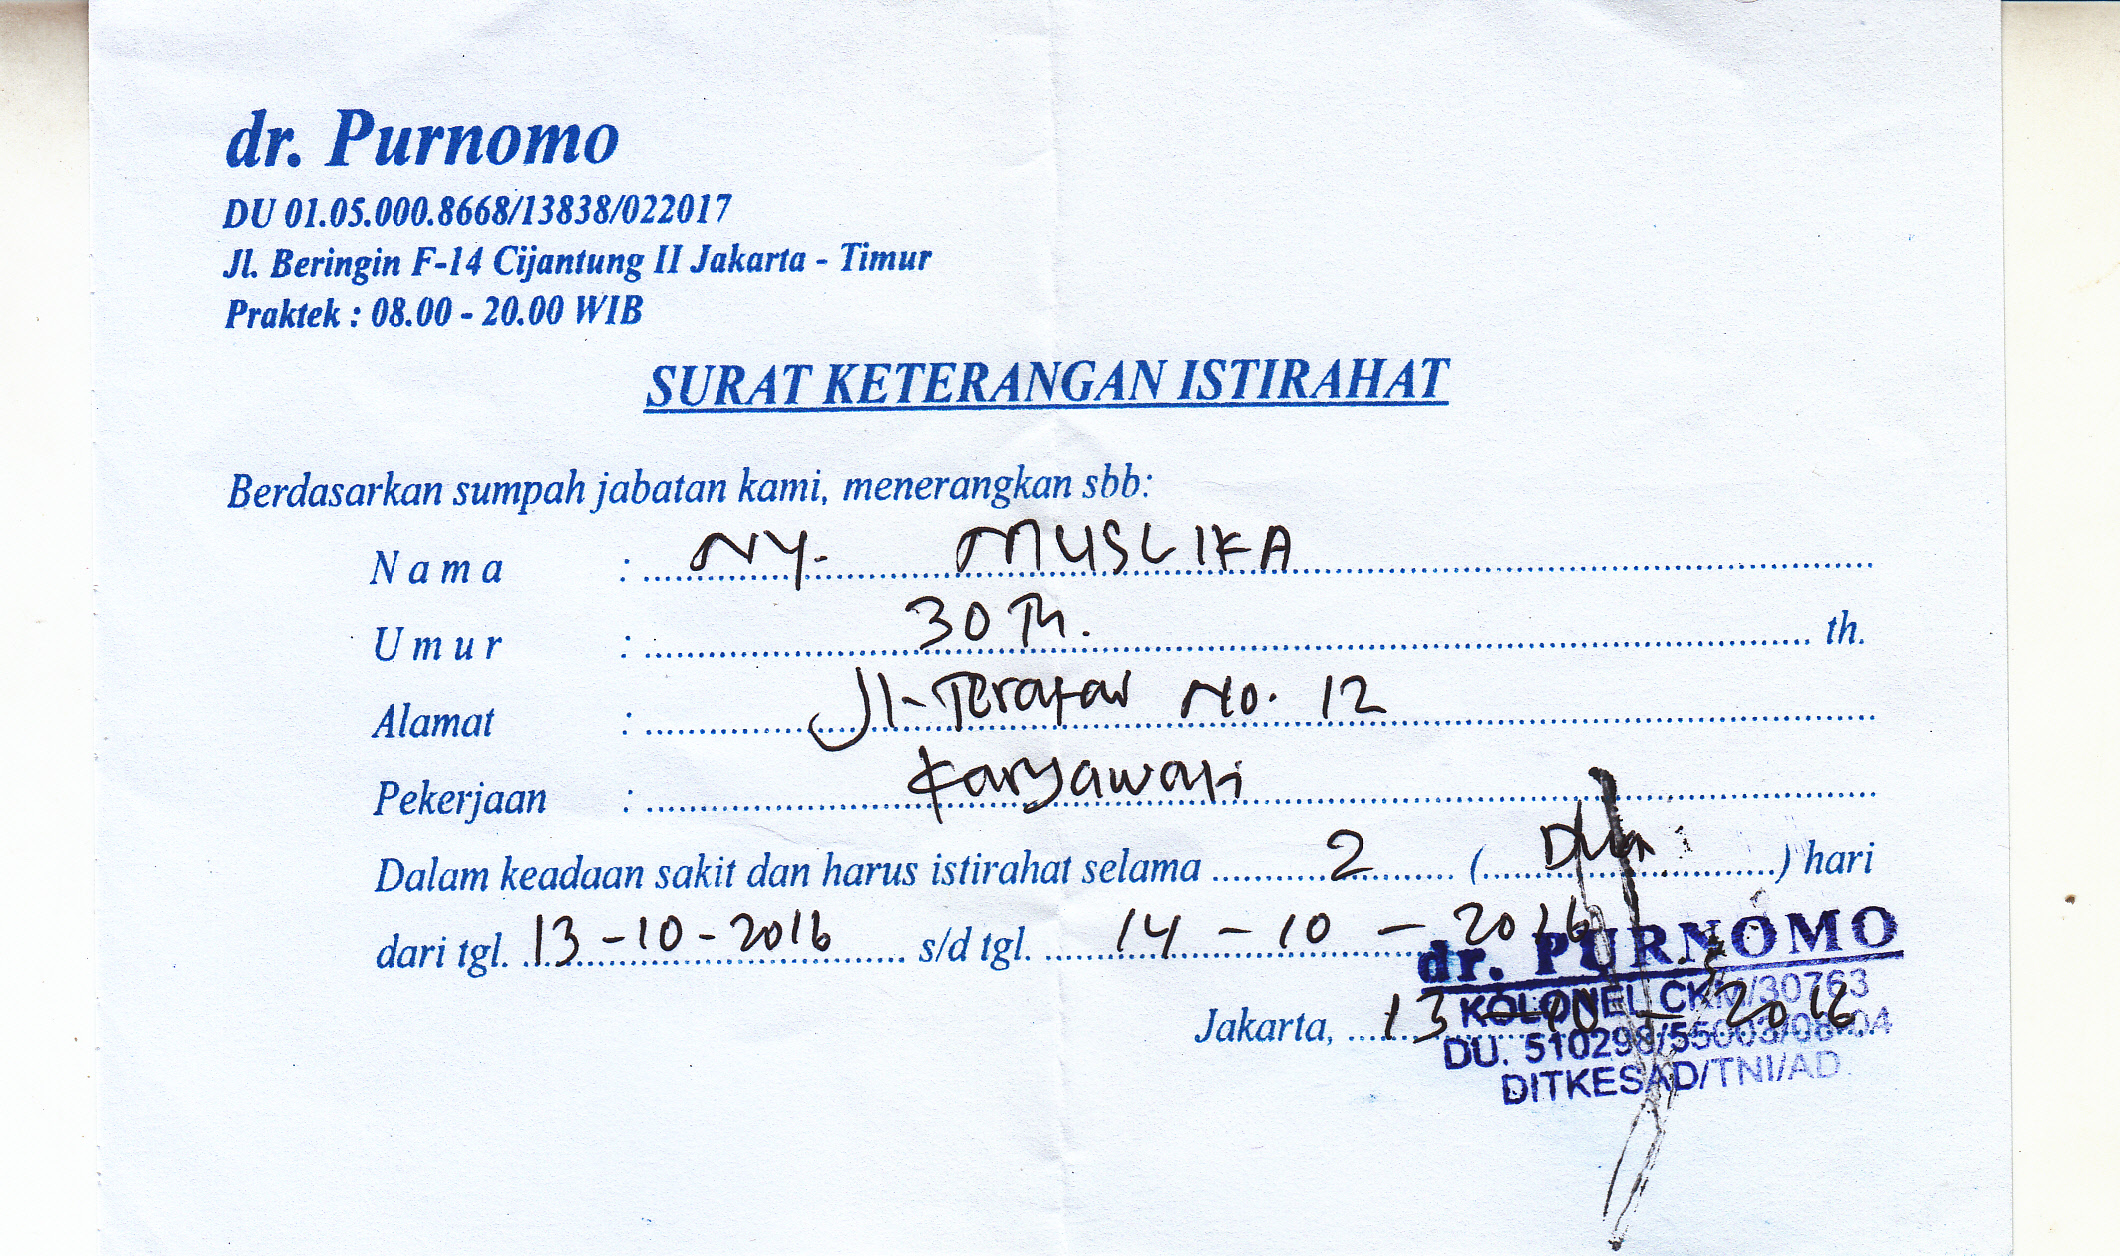 dr. Purnomo
DU 01.05.000.8668/13838/022017
Jl. Beringin F-14 Cijantung II Jakarta - Timur
Praktek : 08.00 - 20.00 WIB
SURAT KETERANGAN ISTIRAHAT
Berdasarkan sumpah jabatan kami, menerangkan sbb:
Nama : NY. MUSLIKA
Umur : 30 Th. th.
Alamat : Jl. Teratai No. 12
Pekerjaan : Karyawati
Dalam keadaan sakit dan harus istirahat selama 2 ( Dua ) hari
dari tgl. 13-10-2016 s/d tgl. 14 - 10 - 2016
dr. PURNOMO
Jakarta, 13 - 10 - 2016
KOLONEL CKM/30763
DU. 510298/55003/08-04
DITKESAD/TNI/AD